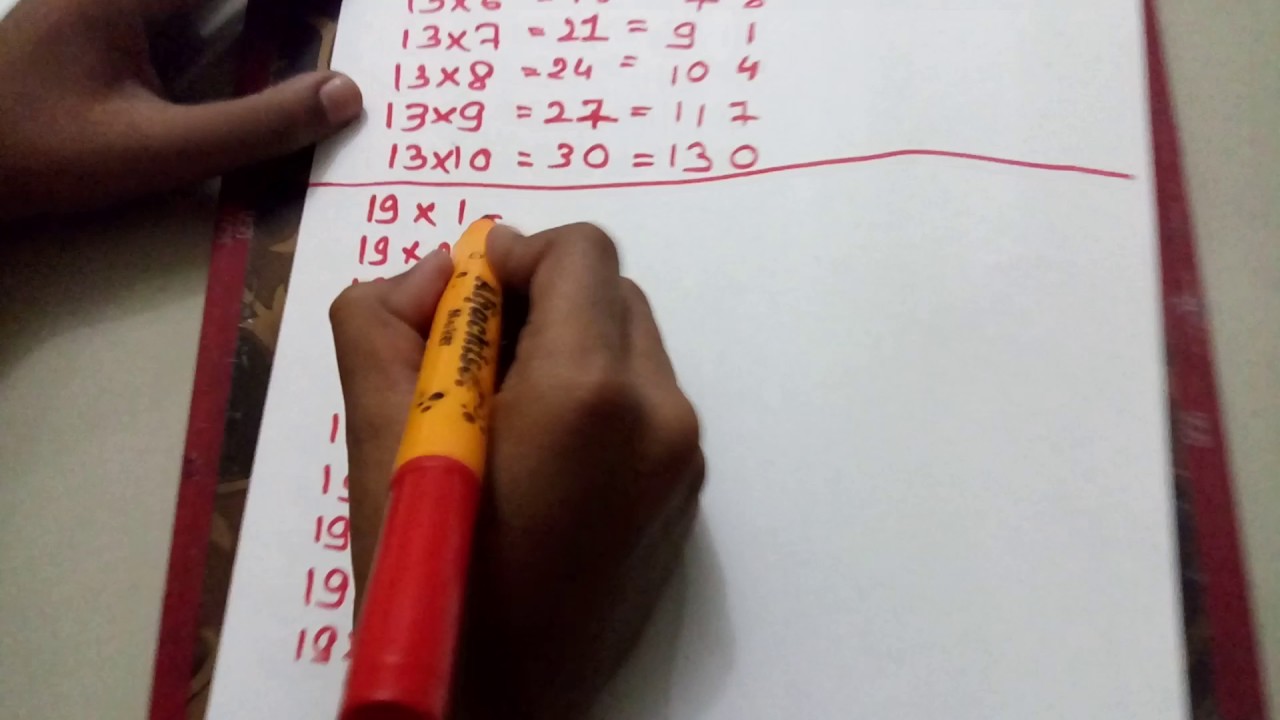 13×7 = 21 = 9 1
13×8 = 24 = 10 4
13×9 = 27 = 11 7
13×10 = 30 = 13 0
19 × 1 =
19 ×
19
19
19
Marker